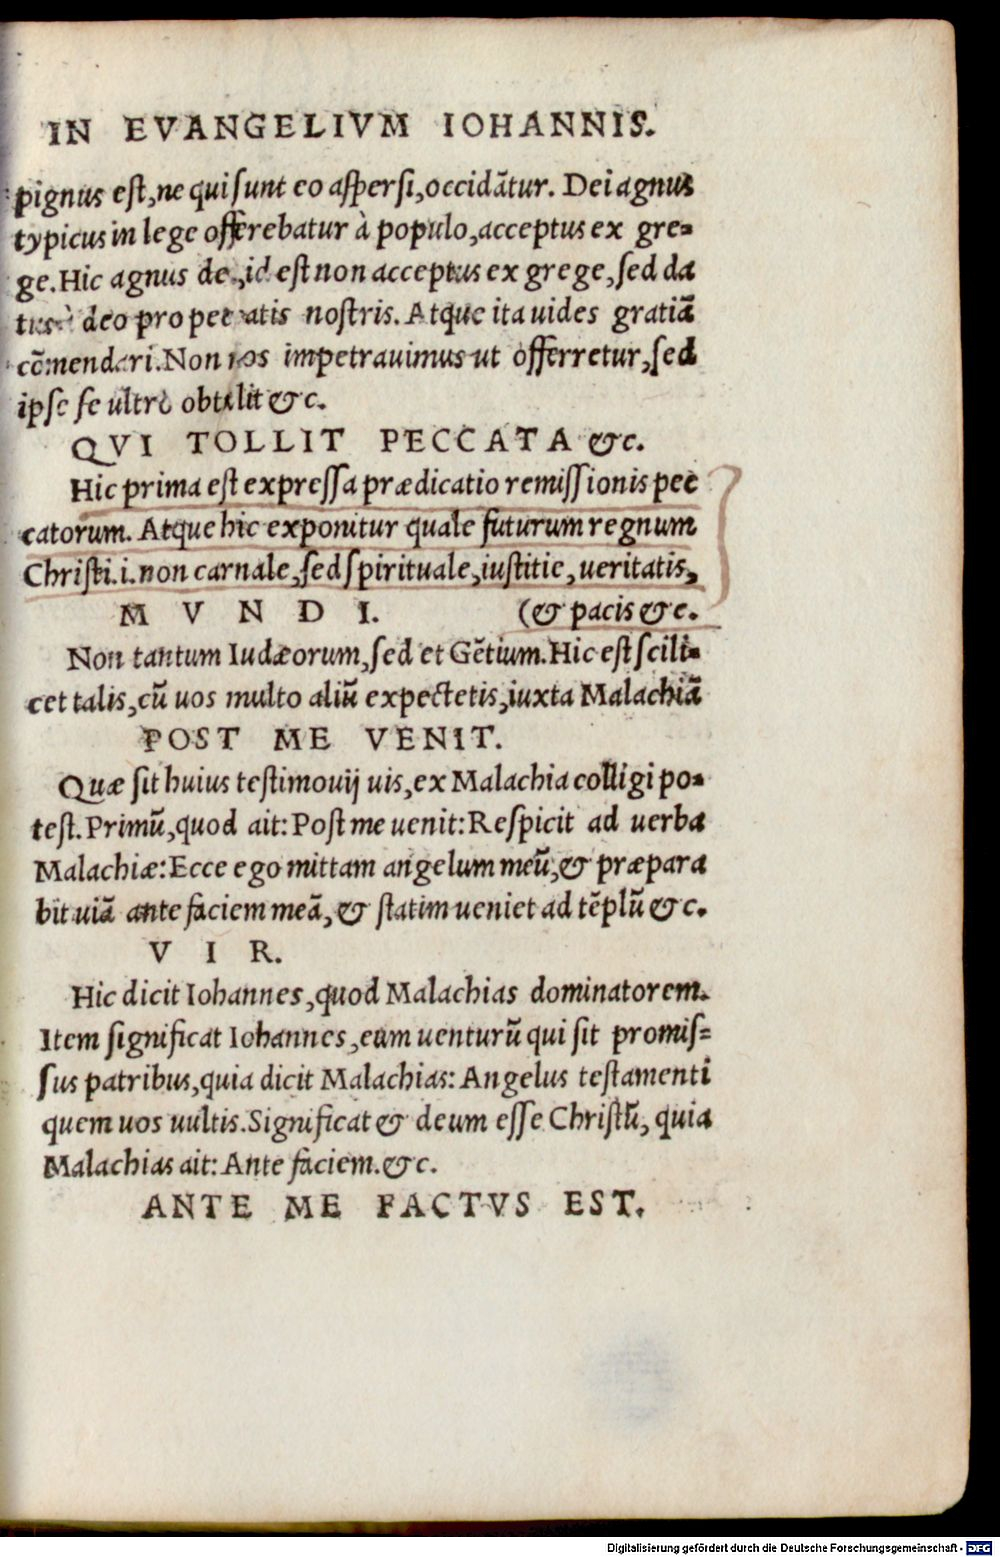 IN EVANGELIVM IOHANNIS.
pignus est, ne qui sunt eo aspersi, occidãtur. Dei agnus
typicus in lege offerebatur à populo, acceptus ex gre-
ge. Hic agnus de , id est non acceptus ex grege, sed da
tus à deo pro peccatis nostris. Atque ita uides gratiã
cõmendari. Non nos impetrauimus ut offerretur, sed
ipse se ultrò obtulit &c.
QVI TOLLIT PECCATA &c.
Hic prima est expressa prædicatio remissionis pec
catorum. Atque hic exponitur quale futurum regnum
Christi .i. non carnale, sed spirituale, iustitie, ueritatis,
MVNDI. (& pacis &c.
Non tantum Iudæorum, sed et Gẽtium. Hic est scili-
cet talis, cũ uos multo aliũ expectetis, iuxta Malachiã
POST ME VENIT.
Quæ sit huius testimouij uis, ex Malachia colligi po-
test. Primũ, quod ait: Post me uenit: Respicit ad uerba
Malachiæ: Ecce ego mittam angelum meũ, & præpara
bit uiã ante faciem meã, & statim ueniet ad tẽplũ &c.
VIR.
Hic dicit Iohannes, quod Malachias dominatorem.
Item significat Iohannes, eum uenturũ qui sit promis-
sus patribus, quia dicit Malachias: Angelus testamenti
quem uos uultis. Significat & deum esse Christũ, quia
Malachias ait: Ante faciem. &c.
ANTE ME FACTVS EST.
Digitalisierung gefördert durch die Deutsche Forschungsgemeinschaft - DFG